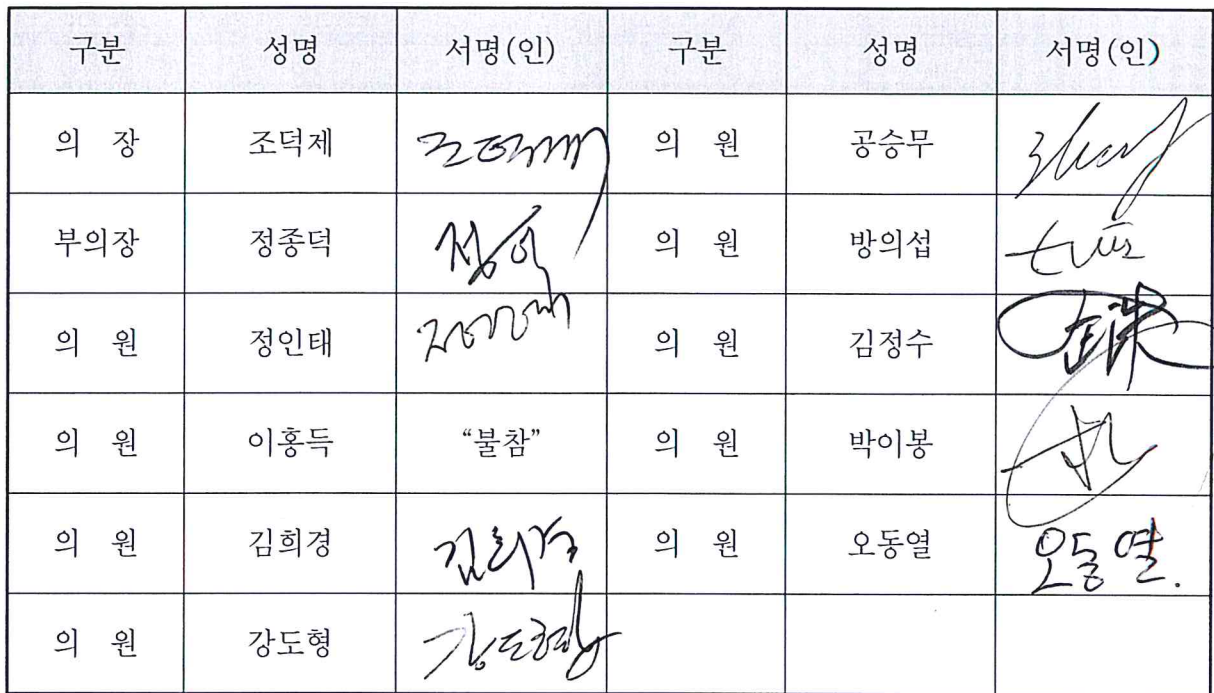 구분 성명 서명(인) 구분 성명 서명(인)
의 장 조덕제 조덕제 의 원 공승무
부의장 정종덕 의 원 방의섭
의 원 정인태 정인태 의 원 김정수
의 원 이홍득 “불참” 의 원 박이봉
의 원 김희경 김희경 의 원 오동열 오동열.
의 원 강도형 강도형